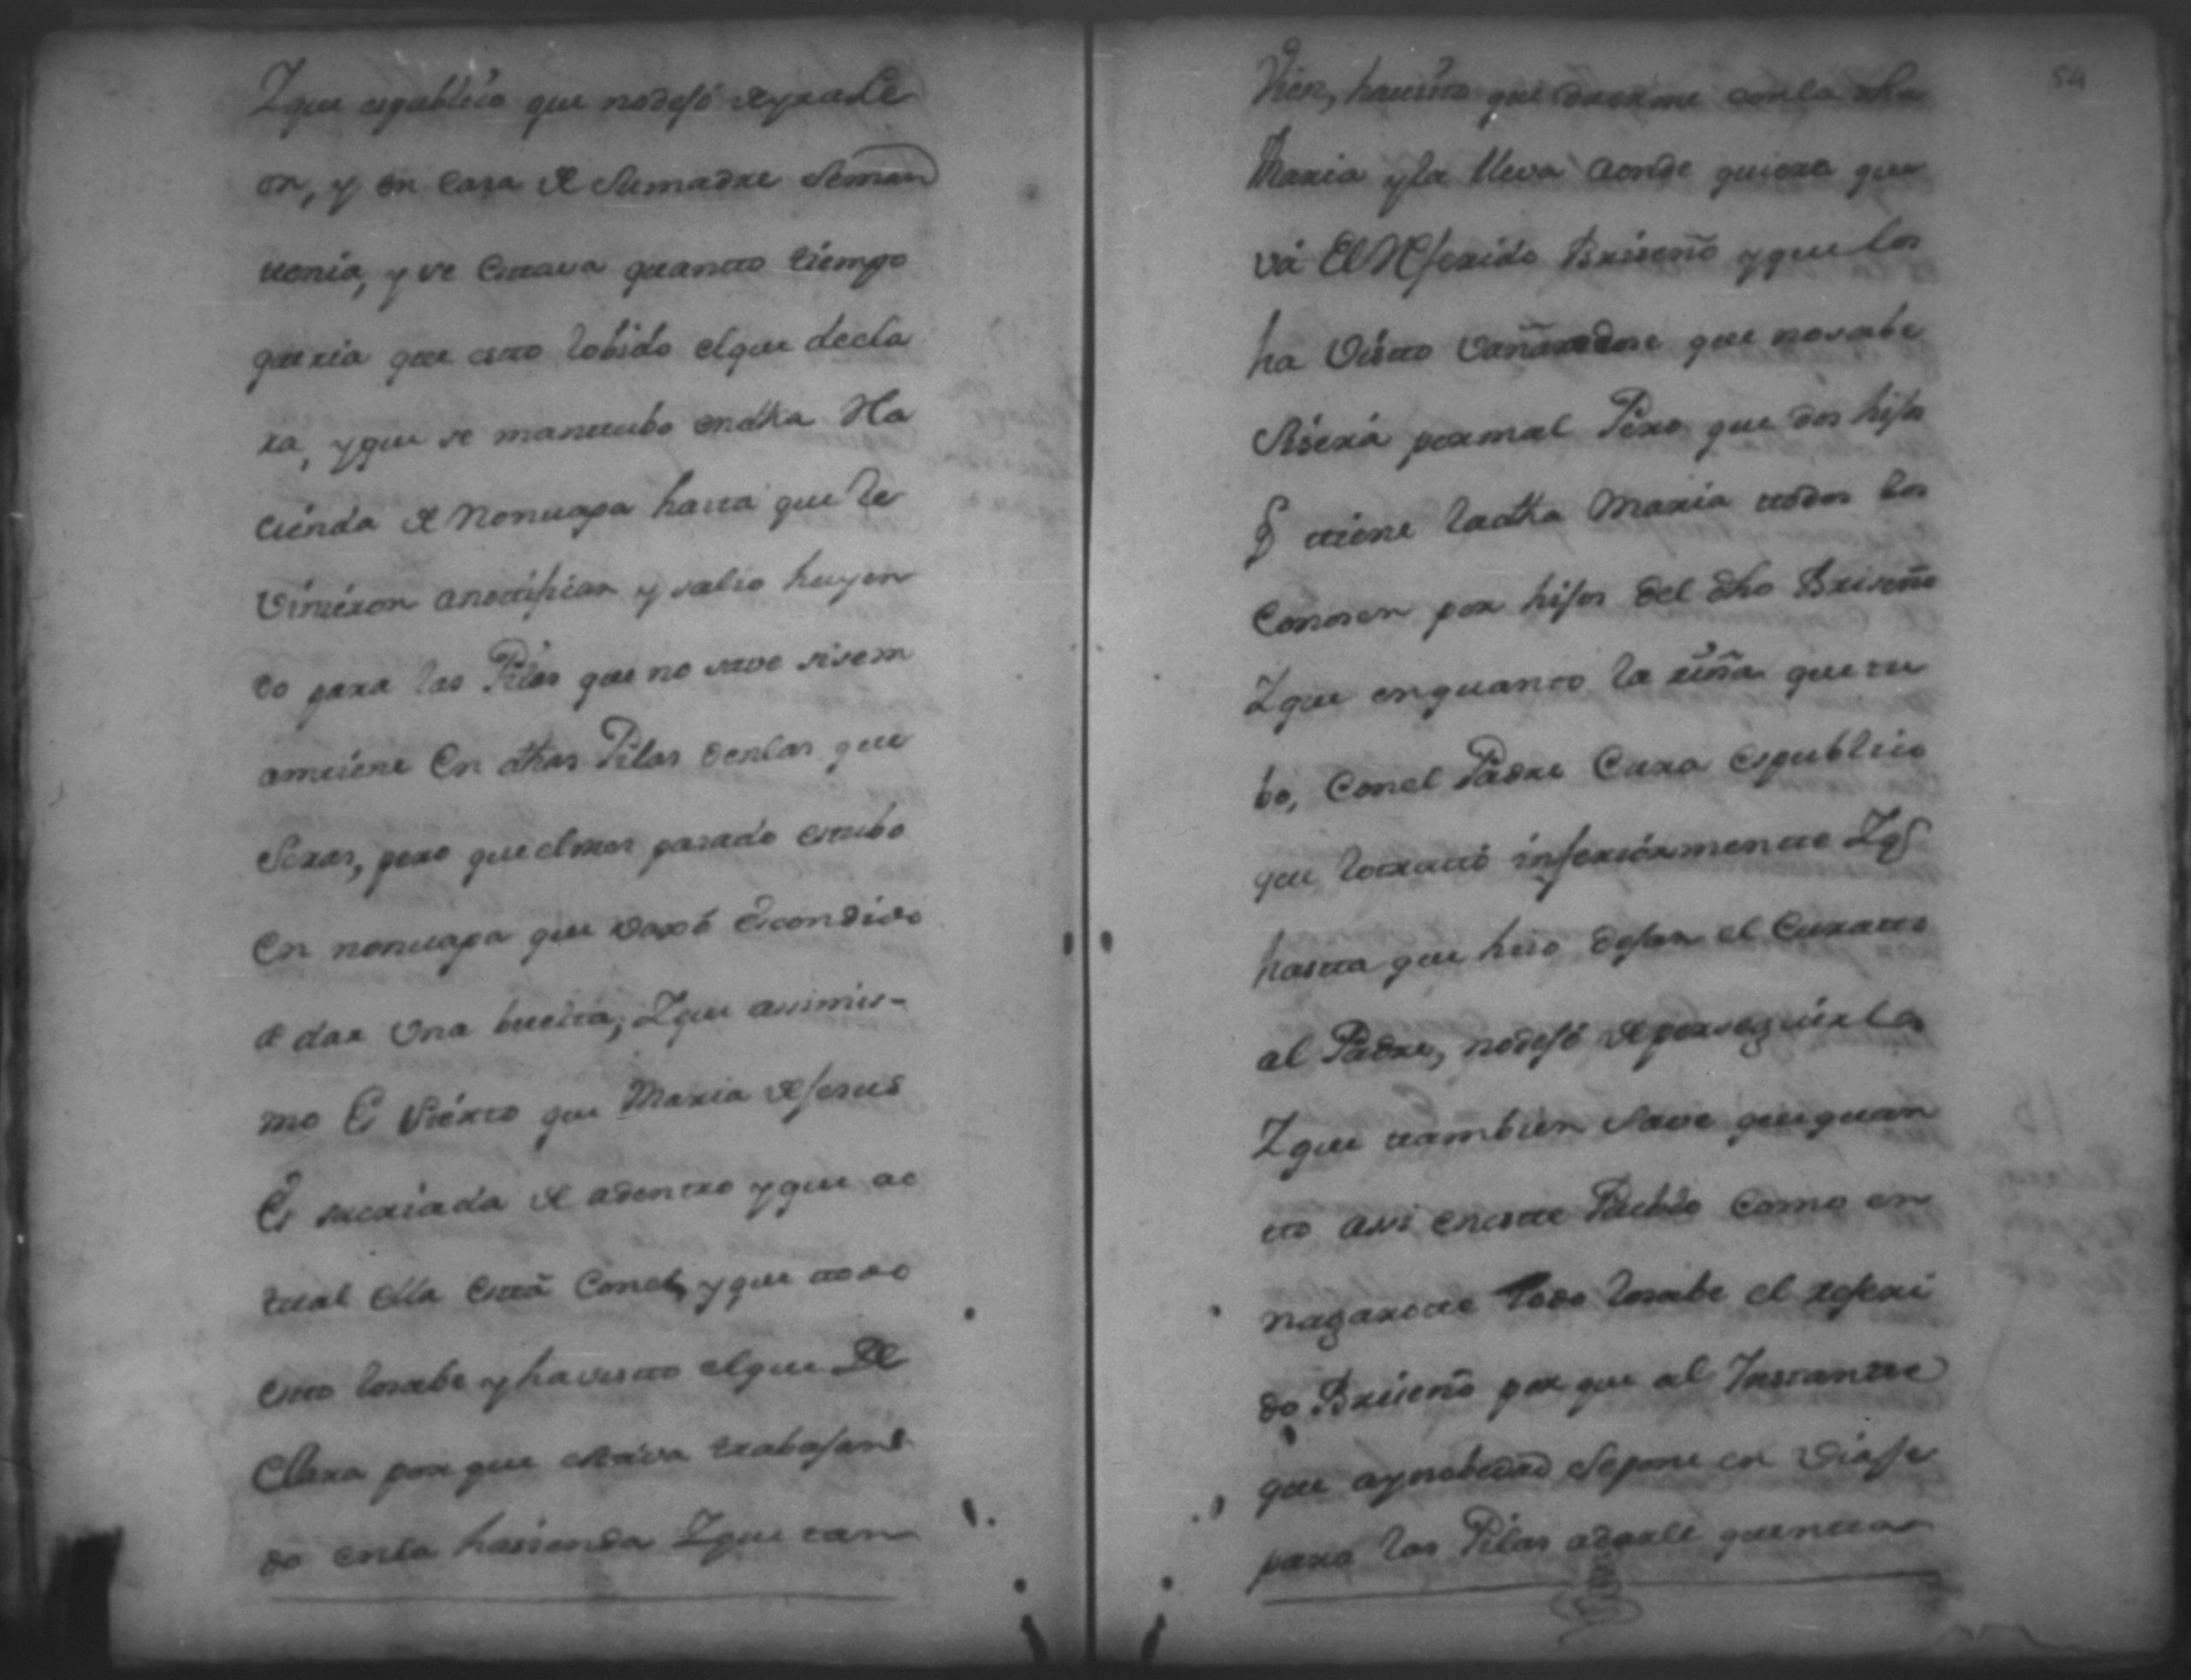 Yque espublico que nodejó de yrale
on, y en casa de Sumadre Seman
tenia, y se estava quanto tiempo
queria que esto lobido elque decla
ra, yque se mantubo endha Ha
cienda de Nonuapa hasta que le
Vinieron anotificar y salio huyen
do para las Pilas que no save sisem
amtiene En dhas Pilas Oenlas
Seras, pero que elmes pasado estubo
En nonuapa que Escondido
a dar Una buelta, Yque asimis-
mo Es Sierto que Maria de Jesus
Es sucriada de adentro yque ac
tual ella está Conel, yque todo
esto losabe yhavisto elque De
Clara por que estava trabajan
do enla hasienda Yque tam
54
Vien, havisto que duerme conla dha
Maria yla lleva aonde quiera que
vá El Referido Briseño yque los
ha Visto Vañandose que nosabe
Siserá pormal Pero que dos hijos
q tiene ladha Maria todos los
Conosen por hijos del dho Briseño
Yque enquanto la riña que tu
bo, Conel Padre Cura espublico
que lotrató inferiormente Yq
hasta que hiso dejar el Curato
al Padre, nodejó de perseguirlo
Yque tambien Save quequan
to assi eneste Pueblo Como en
nagarote todo losabe el referi
do Briseño por que al Instante
que aynobedad Sepone en Viaje
para las Pilas adarle quenta